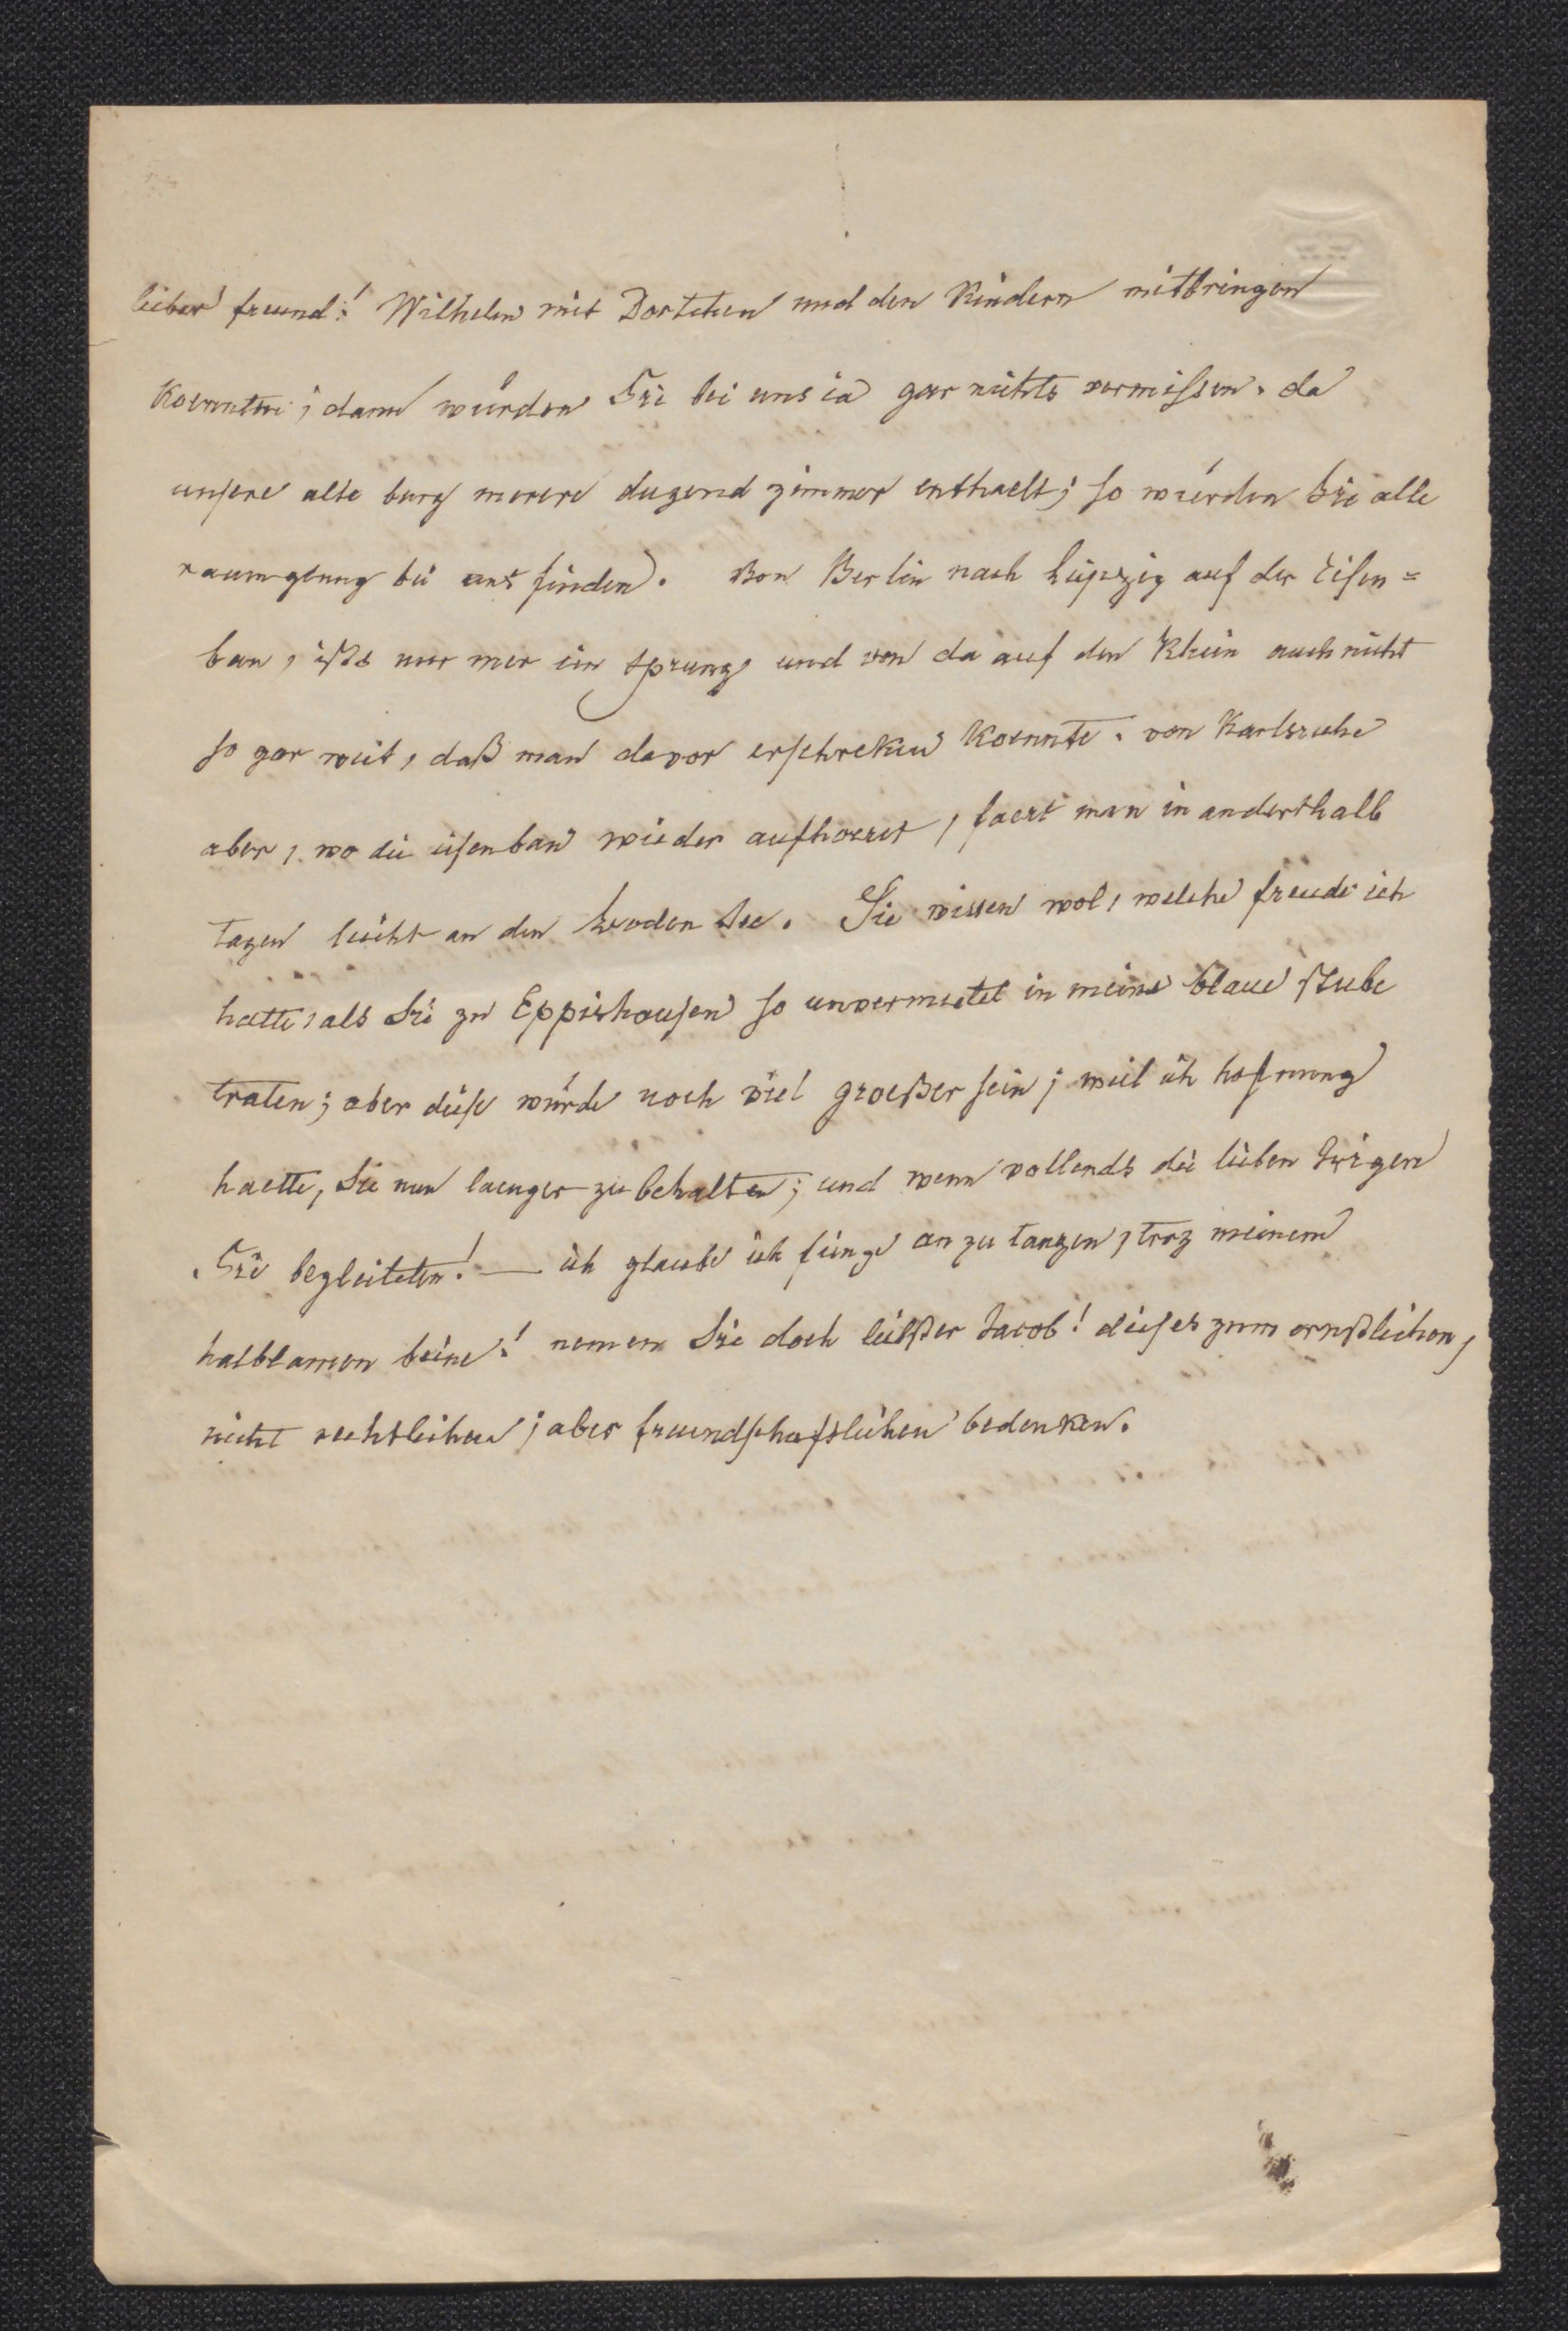 lieber freund! Wilhelm mit Dortchen und den Kindern mitbringen
koennten; dann würden Sie bei uns ia gar nichts vermissen. da
unsere alte burg merere duzend zimmer enthaelt; so würden Sie alle
raum genug bei uns finden. Von Berlin nach Leipzig auf der Eisen=
ban, ists nur mer ein sprung und von da auf den Rhein auch nicht
so gar weit, daß man davor erschreken koennte. von Karlsruhe
aber, wo die eisenban wieder aufhoeret, faert man in anderthalb
tagen leicht an den Boden See. Sie wissen wol, welche freude ich
hatte, als Sie zu Eppishausen so unvermutet in meine blaue stube
traten; aber diese würde noch viel groeßer sein; weil ich hofnung
haette, Sie nun laenger zu behalten; und wenn vollends die lieben Irigen
Sie begleiteten! — ich glaube ich fienge an zu tanzen, troz meinem
halblamen beine! nemen Sie doch liebster Jacob! dieses zum ernstlichen,
nicht rechtlichen; aber freundschaftlichen bedenken.